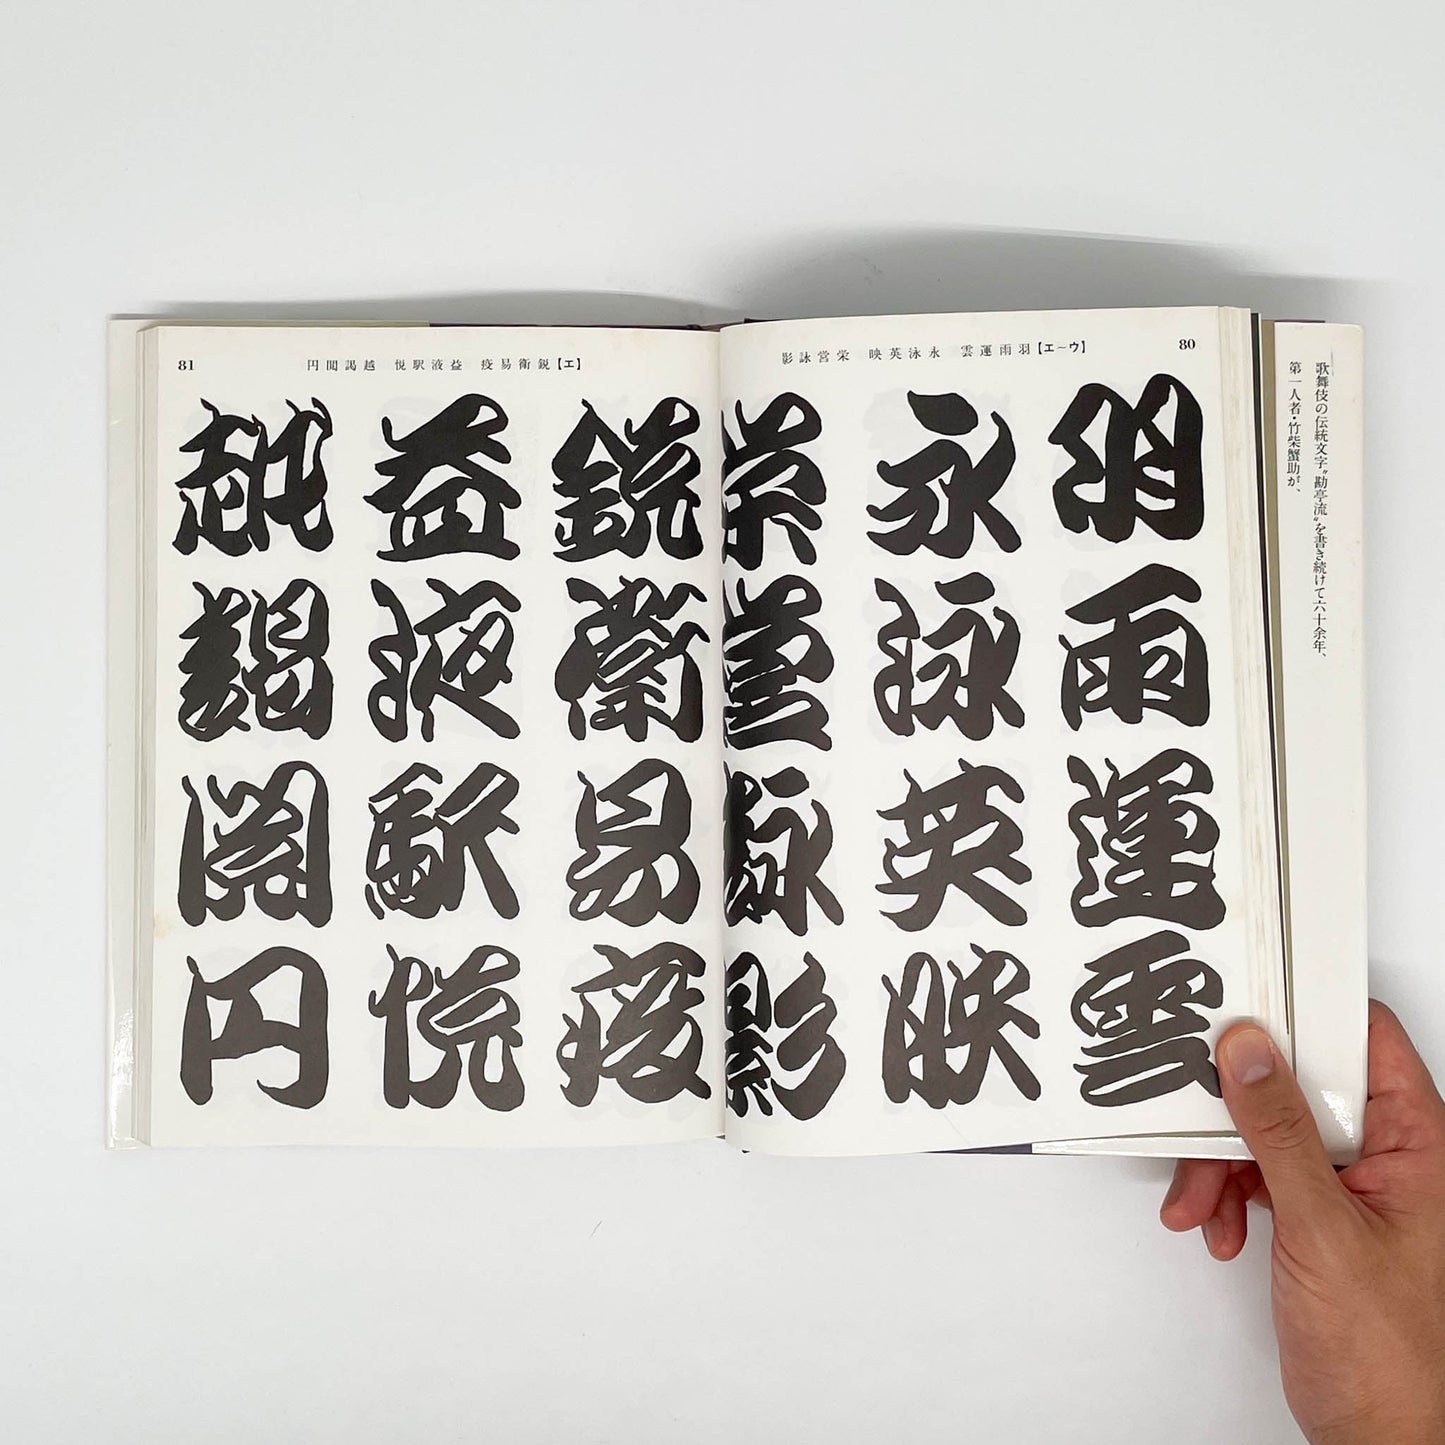 歌舞伎の伝統文字〝勘亭流〟を書き続けて六十余年、
第一人者・竹柴蟹助が、
80
【ウ－エ】羽雨運雲 永泳英映 栄営詠影
羽雨運雲
永泳英映
栄営詠影
81
【エ】鋭衛易疫 益液駅悦 越謁閲円
鋭衛易疫
益液駅悦
越謁閲円